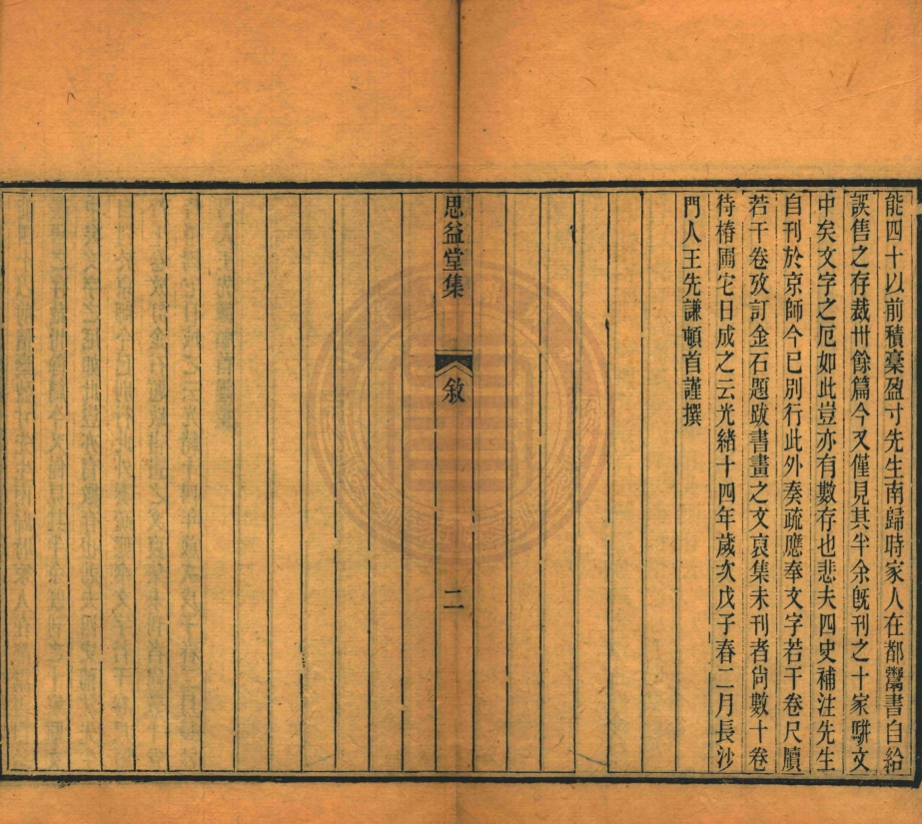 能四十以前積稾盈寸先生南歸時家人在都鬻書自給
誤售之存裁卅餘篇今又僅見其半余旣刊之十家駢文
中矣文字之厄如此豈亦有數存也悲夫四史補注先生
自刊於京師今已別行此外奏疏應奉文字若干卷尺牘
若干卷攷訂金石題跋書畫之文裒集未刊者尙數十卷
待椿圃宅日成之云光緒十四年歲次戊子春二月長沙
門人王先謙頓首謹撰
思益堂集
敘
二